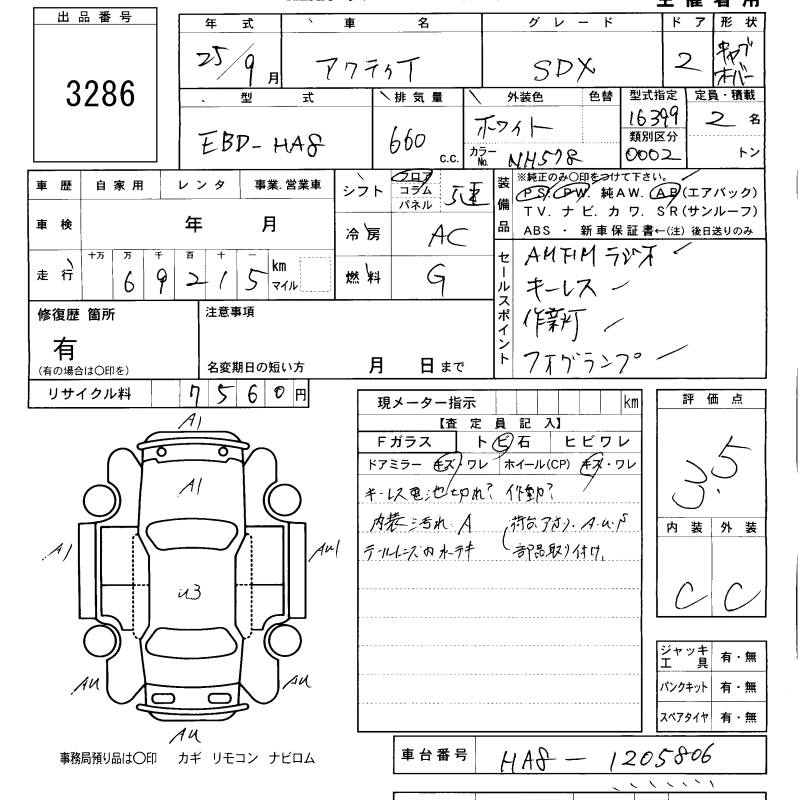 出品番号
3286
年式 車名 グレード ドア 形状
25/9月 アクティT SDX 2 キャブオーバー
型式 排気量 外装色 色替 型式指定 定員・積載
EBD-HA8 660 c.c. ホワイト 16399 2名
カラーNo. NH578 類別区分 0002 トン
車歴 自家用 レンタ 事業.営業車
シフト フロア コラム パネル 5速
装備品 ※純正のみ〇印をつけて下さい。
PS. PW. 純AW. AB(エアバック)
TV. ナビ. カワ. SR(サンルーフ)
ABS ・ 新車保証書←(注) 後日送りのみ
車検 年 月
冷房 AC
走行 十万 万 千 百 十 一
69215 km マイル
燃料 G
セールスポイント
AMFMラジオ
キーレス
作業灯
フォグランプ
修復歴 箇所
有
(有の場合は〇印を)
注意事項
名変期日の短い方 月 日まで
リサイクル料 7560円
現メーター指示 km
【査定員記入】
Fガラス トビ石 ヒビワレ
ドアミラー キズ・ワレ ホイール(CP) キズ・ワレ
キーレス電池切れ? 作動?
内装 汚れ A
荷台 アオリ A.U.P
テールレンズ内水テキ
部品取り付け.
評価点
3.5
内装 外装
C C
ジャッキ工具 有・無
パンクキット 有・無
スペアタイヤ 有・無
A1
A1
A1
AU1
U3
AU
AU
AU
事務局預り品は〇印 カギ リモコン ナビロム
車台番号 HA8-1205806